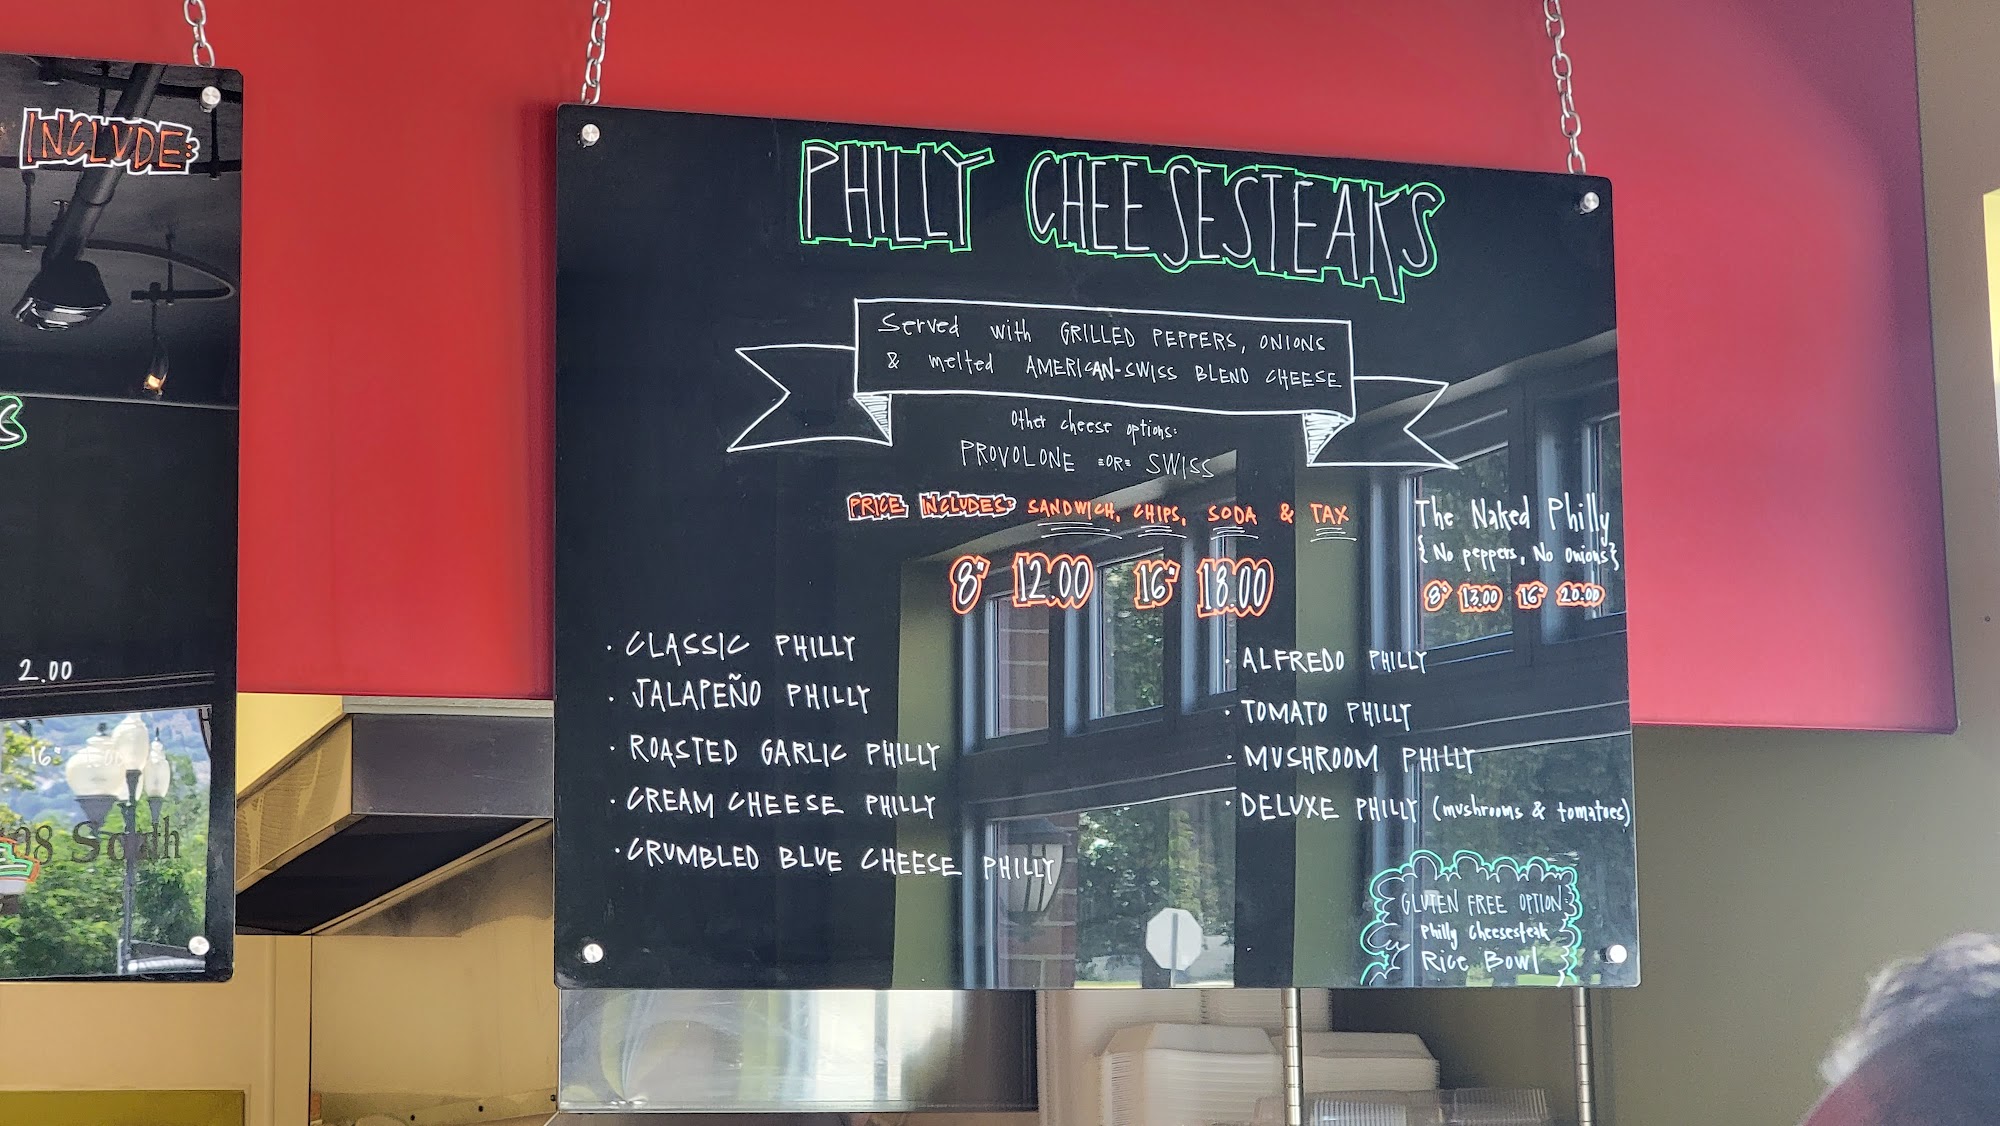 INCLUDE:
2.00
16"
08 South
PHILLY CHEESESTEAKS
Served with GRILLED PEPPERS, ONIONS
& melted AMERICAN-SWISS BLEND CHEESE
Other cheese options:
PROVOLONE =OR= SWISS
PRICE INCLUDES: SANDWICH, CHIPS, SODA & TAX
8" 12.00 16" 18.00
The Naked Philly
{No peppers, No onions}
8" 13.00 16" 20.00
· CLASSIC PHILLY
· JALAPEÑO PHILLY
· ROASTED GARLIC PHILLY
· CREAM CHEESE PHILLY
· CRUMBLED BLUE CHEESE PHILLY
· ALFREDO PHILLY
· TOMATO PHILLY
· MUSHROOM PHILLY
· DELUXE PHILLY (mushrooms & tomatoes)
GLUTEN FREE OPTION:
Philly Cheesesteak
Rice Bowl